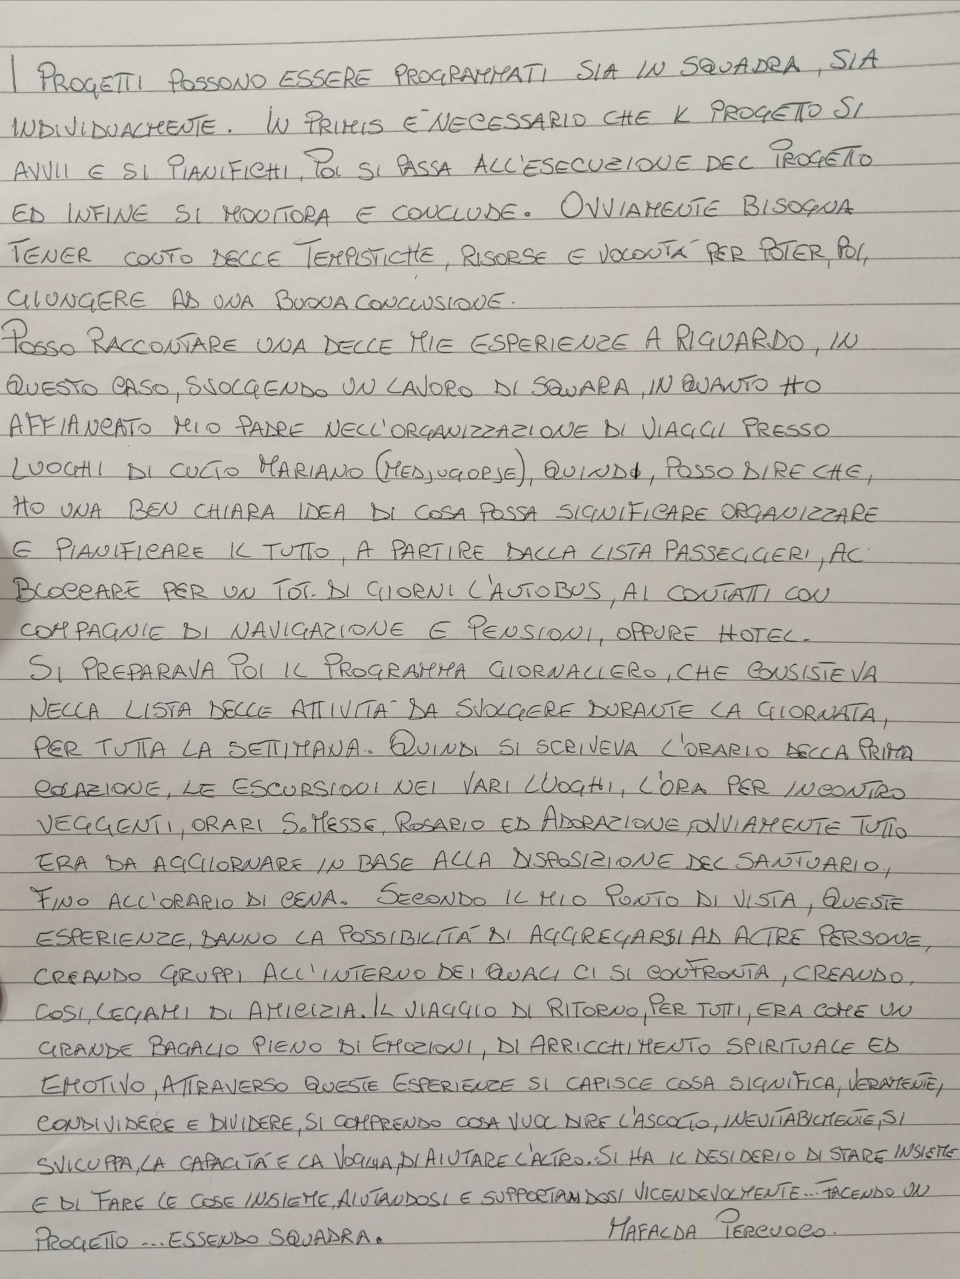 I PROGETTI POSSONO ESSERE PROGRAMMATI SIA IN SQUADRA, SIA
INDIVIDUALMENTE. IN PRIMIS È NECESSARIO CHE IL PROGETTO SI
AVVII E SI PIANIFICHI, POI SI PASSA ALL'ESECUZIONE DEL PROGETTO
ED INFINE SI MONITORA E CONCLUDE. OVVIAMENTE BISOGNA
TENER CONTO DELLE TEMPISTICHE, RISORSE E VOLONTÀ PER POTER, POI,
GIUNGERE AD UNA BUONA CONCLUSIONE.
POSSO RACCONTARE UNA DELLE MIE ESPERIENZE A RIGUARDO, IN
QUESTO CASO, SVOLGENDO UN LAVORO DI SQUARA, IN QUANTO HO
AFFIANCATO MIO PADRE NELL'ORGANIZZAZIONE DI VIAGGI PRESSO
LUOGHI DI CULTO MARIANO (MEDJUGORJE), QUINDI, POSSO DIRE CHE,
HO UNA BEN CHIARA IDEA DI COSA POSSA SIGNIFICARE ORGANIZZARE
E PIANIFICARE IL TUTTO, A PARTIRE DALLA LISTA PASSEGGERI, AL
BLOCCARE PER UN TOT. DI GIORNI L'AUTOBUS, AI CONTATTI CON
COMPAGNIE DI NAVIGAZIONE E PENSIONI, OPPURE HOTEL.
SI PREPARAVA POI IL PROGRAMMA GIORNALIERO, CHE CONSISTEVA
NELLA LISTA DELLE ATTIVITÀ DA SVOLGERE DURANTE LA GIORNATA,
PER TUTTA LA SETTIMANA. QUINDI SI SCRIVEVA L'ORARIO DELLA PRIMA
COLAZIONE, LE ESCURSIONI NEI VARI LUOGHI, L'ORA PER INCONTRO
VEGGENTI, ORARI S.MESSE, ROSARIO ED ADORAZIONE, OVVIAMENTE TUTTO
ERA DA AGGIORNARE IN BASE ALLA DISPOSIZIONE DEL SANTUARIO,
FINO ALL'ORARIO DI CENA. SECONDO IL MIO PUNTO DI VISTA, QUESTE
ESPERIENZE, DANNO LA POSSIBILITÀ DI AGGREGARSI AD ALTRE PERSONE,
CREANDO GRUPPI ALL'INTERNO DEI QUALI CI SI CONFRONTA, CREANDO,
COSÌ, LEGAMI DI AMICIZIA. IL VIAGGIO DI RITORNO, PER TUTTI, ERA COME UN
GRANDE BAGALIO PIENO DI EMOZIONI, DI ARRICCHIMENTO SPIRITUALE ED
EMOTIVO, ATTRAVERSO QUESTE ESPERIENZE SI CAPISCE COSA SIGNIFICA, VERAMENTE,
CONDIVIDERE E DIVIDERE, SI COMPRENDO COSA VUOL DIRE L'ASCOLTO, INEVITABILMENTE, SI
SVILUPPA, LA CAPACITÀ E LA VOGLIA, DI AIUTARE L'ALTRO. SI HA IL DESIDERIO DI STARE INSIEME
E DI FARE LE COSE INSIEME, AIUTANDOSI E SUPPORTANDOSI VICENDEVOLMENTE... FACENDO UN
PROGETTO ... ESSENDO SQUADRA. MAFALDA PERCUOCO.